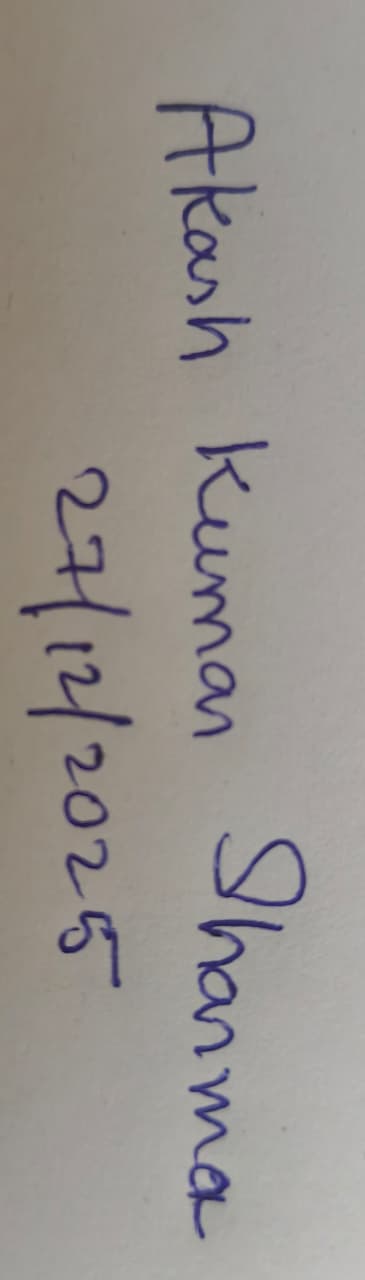 Akash Kumar Sharma
27/12/2025